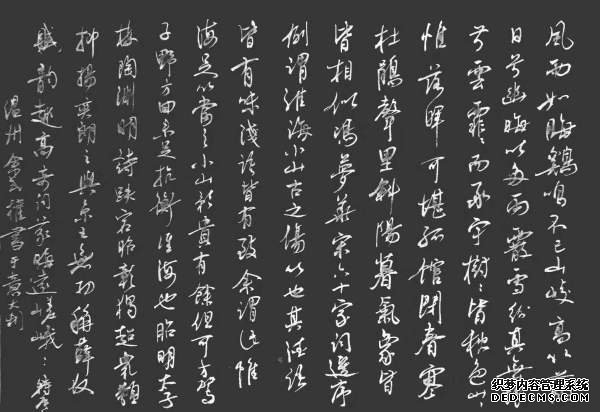 風雨如晦鷄鳴不已山峻高以蔽
日兮幽晦以多雨霰雪紛其
兮雲霏而承宇樹々皆秋色山々
惟落暉可堪孤館閉春寒
杜鵑聲里斜陽暮氣象皆
皆相似馮夢華宋六十字詞選序
例謂淮海小山古之傷心也其淡語
皆有味淺語皆有致余謂此唯
海足以當之小山矜貴有餘但可方駕
子野方回未足抗衡淮海也昭明太子
稱陶淵明詩跌宕昭彰獨超衆類
抑揚爽朗之與京王無功稱薛收
賦韻趣高奇詞義晦遠嵯峨
温州書于
织梦内容管理系统
DEDECMS.COM